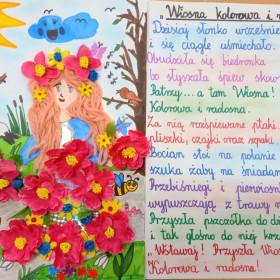 „Wiosna kolorowa i
Dzisiaj słonko wcześnie
i się ciągle uśmiechało.
Obudziła się biedronka
bo słyszała śpiew skow
Patrzy... a tam Wiosna!
Kolorowa i radosna.
Za nią rozśpiewane ptaki
pliszki, czajki oraz szpaki.
Bocian stoi na polanie
szuka żaby na śniadan
Przebiśniegi i pierwiosn
wypuszczają z trawy
Przyszła pszczółka do
i tak głośno do niej krzy
„Wstawaj! Przyszła Wio
Kolorowa i radosna!